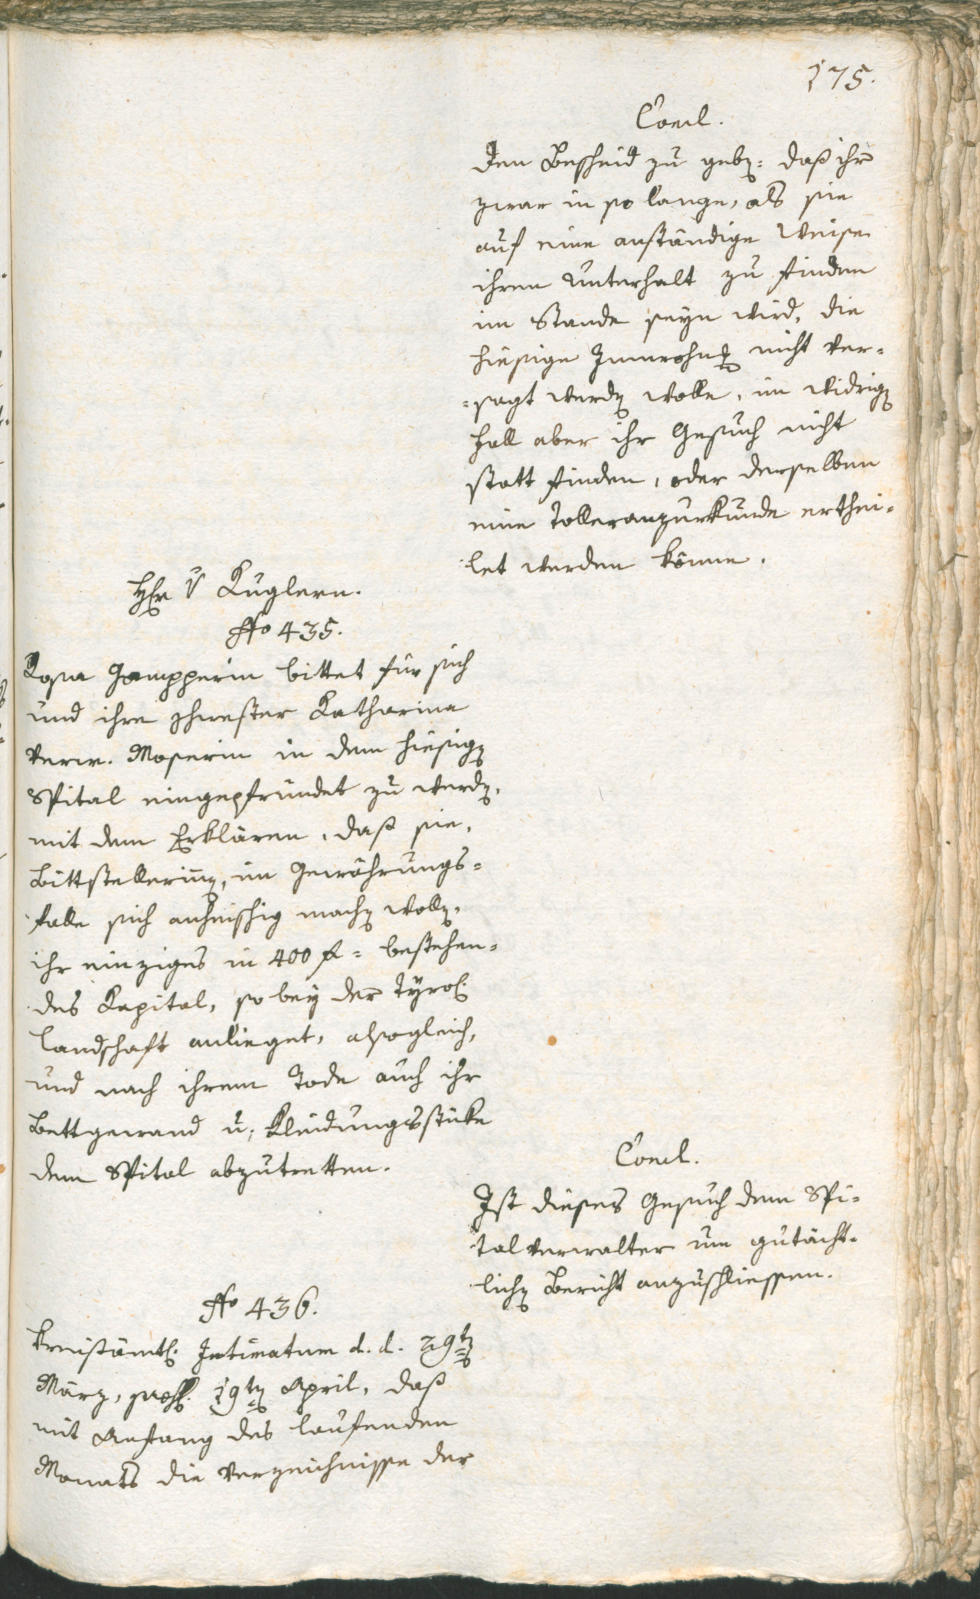 175.
Concl.
Den Bescheid zu geb: daß ihr
zwar in so lange, als sie
auf eine anständige Weise
ihren Unterhalt zu finden
im Stande seyn wird, die
hiesige Innwohng nicht ver-
-sagt werdn wolle, im widrign
Fall aber ihr Gesuch nicht
statt finden, oder derselben
eine Tolleranzurkunde erthei-
let werden könne.
Hr v Kuglern.
No 435.
Rosa Gampperin bittet für sich
und ihre Schwester Katharina
verw. Moserin in dem hiesign
Spital eingepfründet zu werdn,
mit dem Erklären, daß sie,
Bittstellerinn, im Gewährungs-
falle sich anheischig machn wolln,
ihr einziges in 400 f: bestehen-
des Kapital, so bey der Tyrol.
Landschaft anlieget, alsogleich,
und nach ihrem Tode auch ihr
Bettgewand u. Kleidungsstüke
dem Spital abzutretten.
Concl.
Ist dieses Gesuch dem Spi-
talverwalter um gutächt-
lichn Bericht anzuschliessen.
No 436.
Kreisämtl. Intimatum d. d. 29tn
März, 19tn April, daß
mit Anfang des laufenden
Monats die Verzeichnisse der